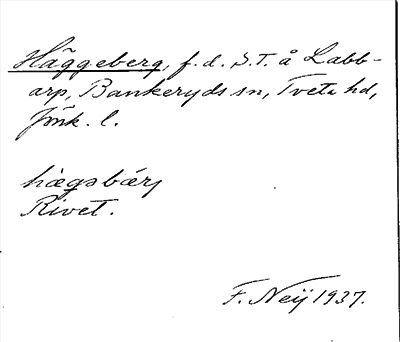 Häggeberg, f. d. S.T. å Labb-
arp, Bankeryds sn, Tveta hd,
Jönk. l.
hægsbärj
Rivet.
F. Neij 1937.